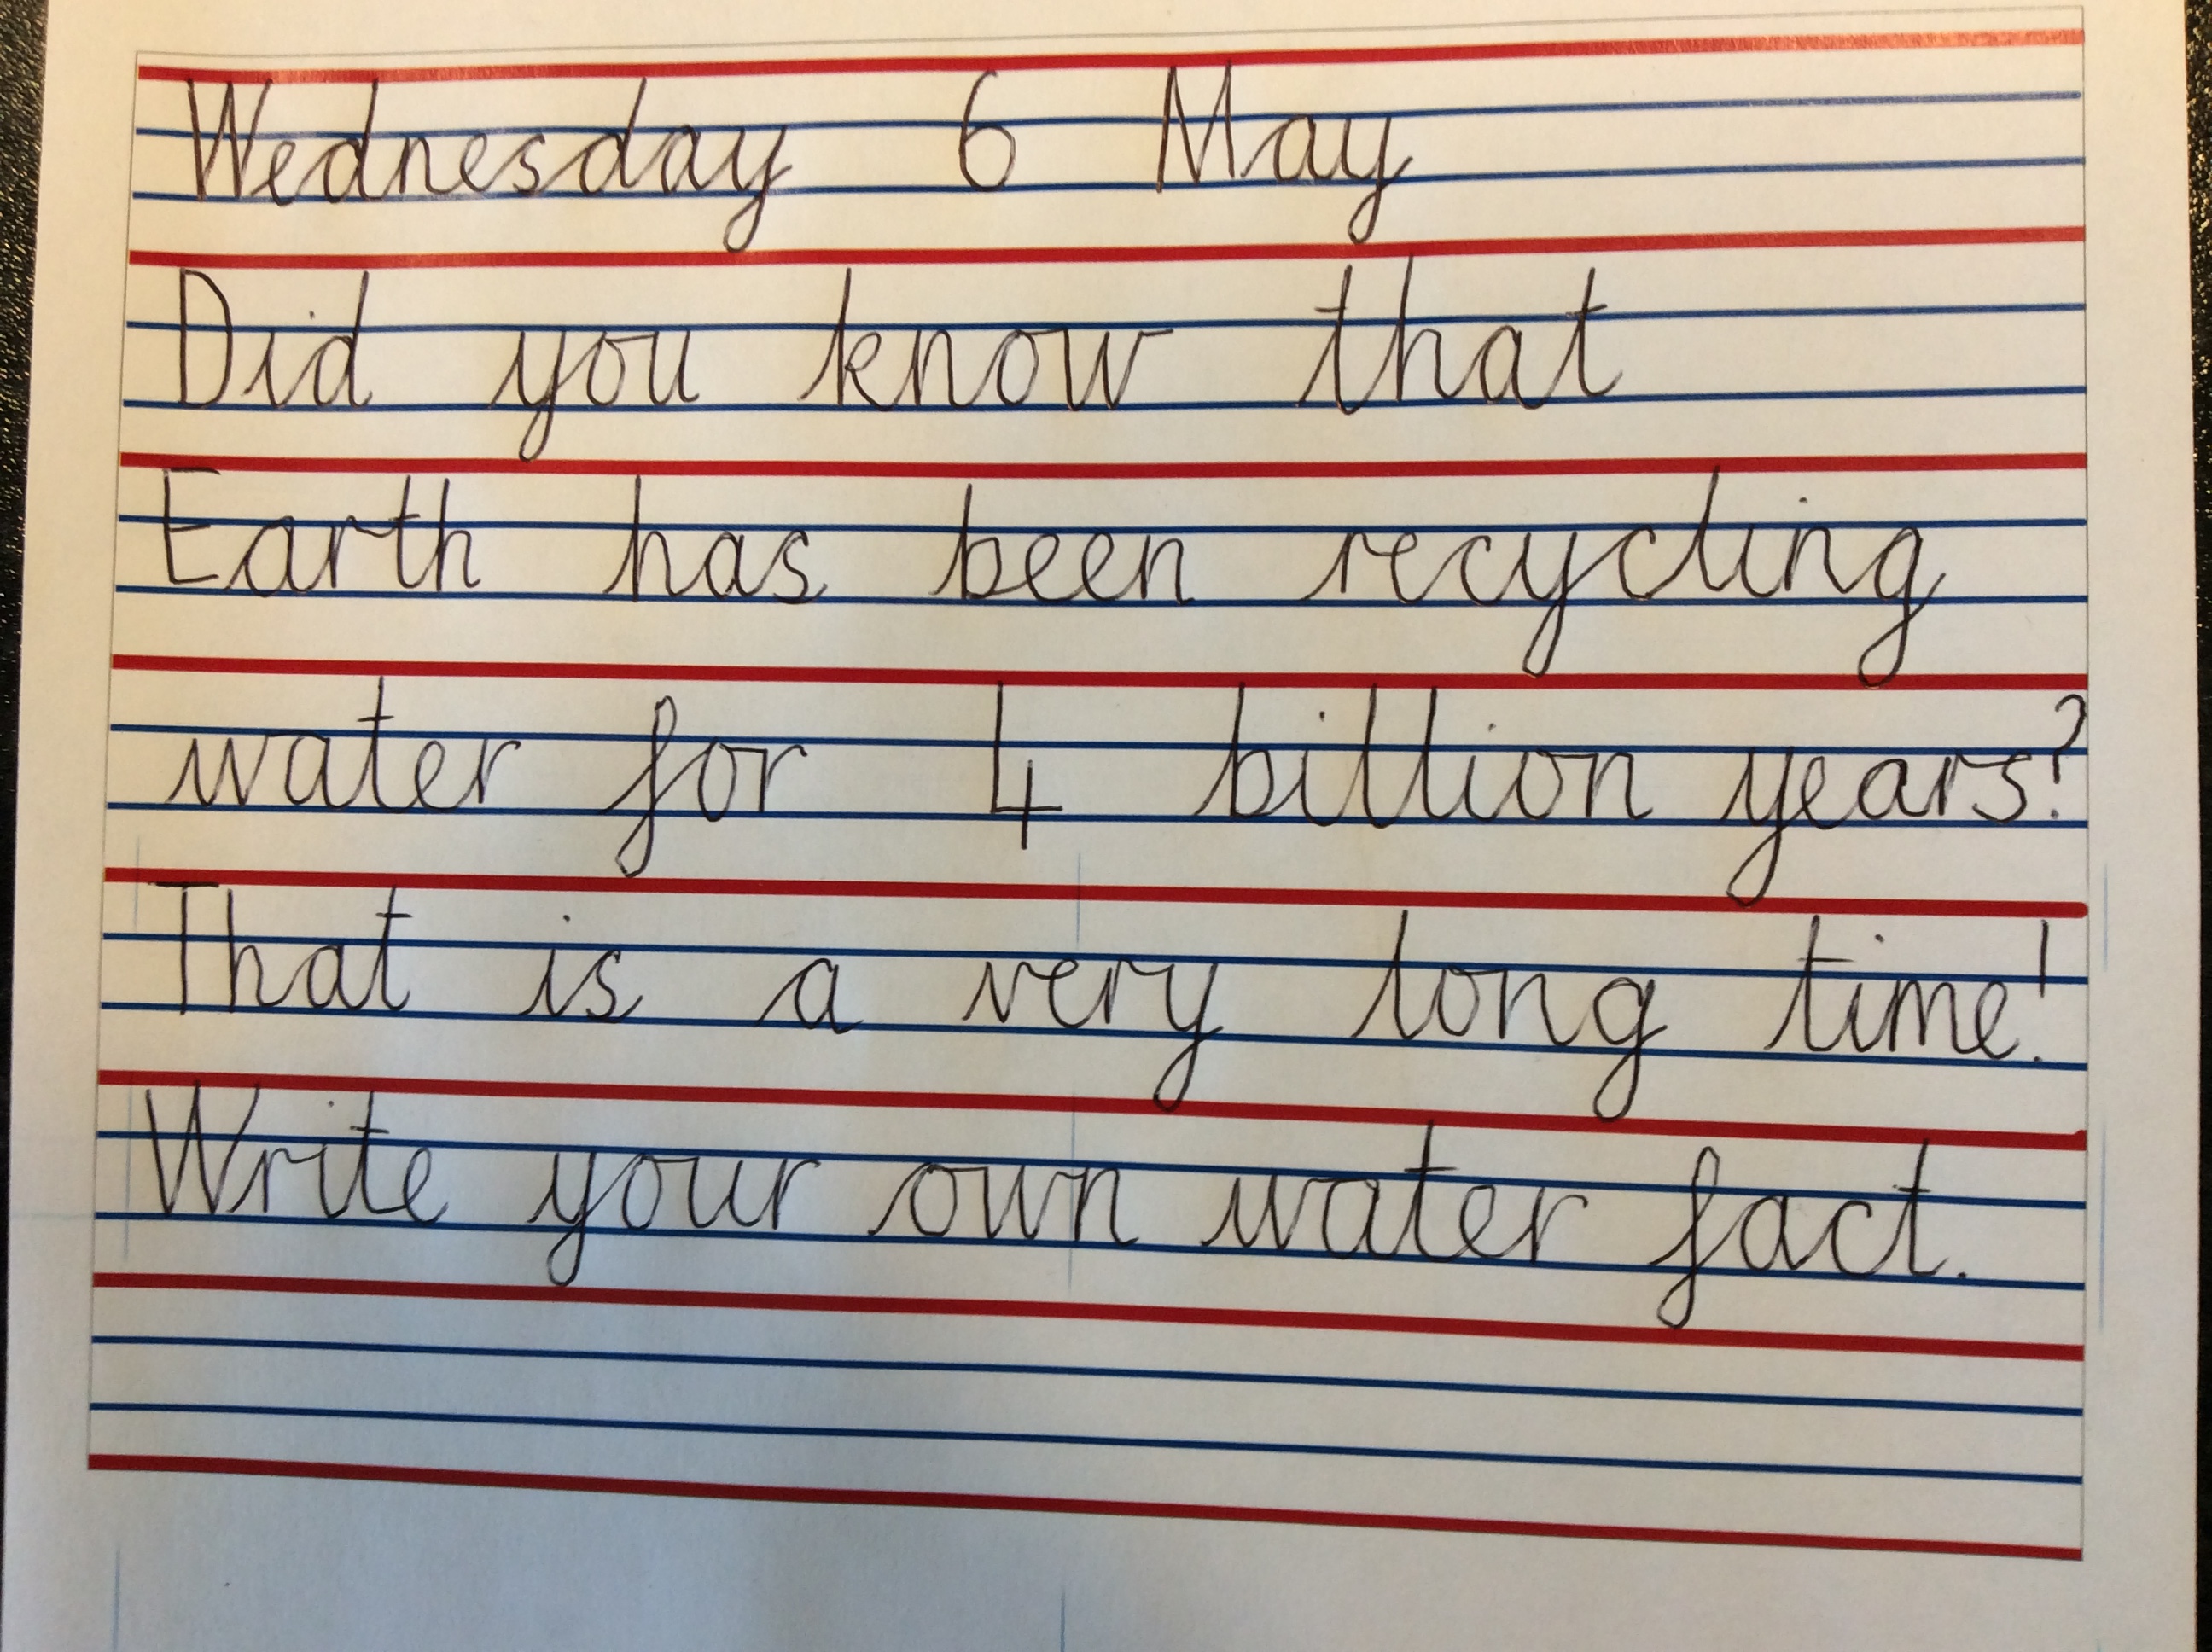 Wednesday 6 May
Did you know that
Earth has been recycling
water for 4 billion years?
That is a very long time!
Write your own water fact.